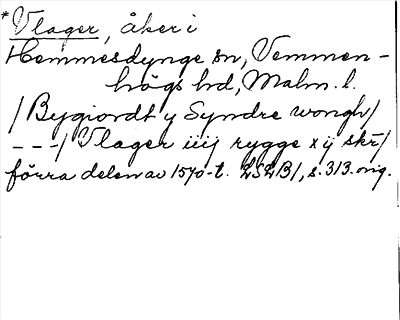 *Vlager, åker i
Hemmesdynge sn, Vemmen-
högs hd, Malm. l.
/Bygiordt y Syndre wongh/
---/ Vlager iiij rygge x ij skr/
förra delen av 1570-t. LSLB1, s. 313. orig.